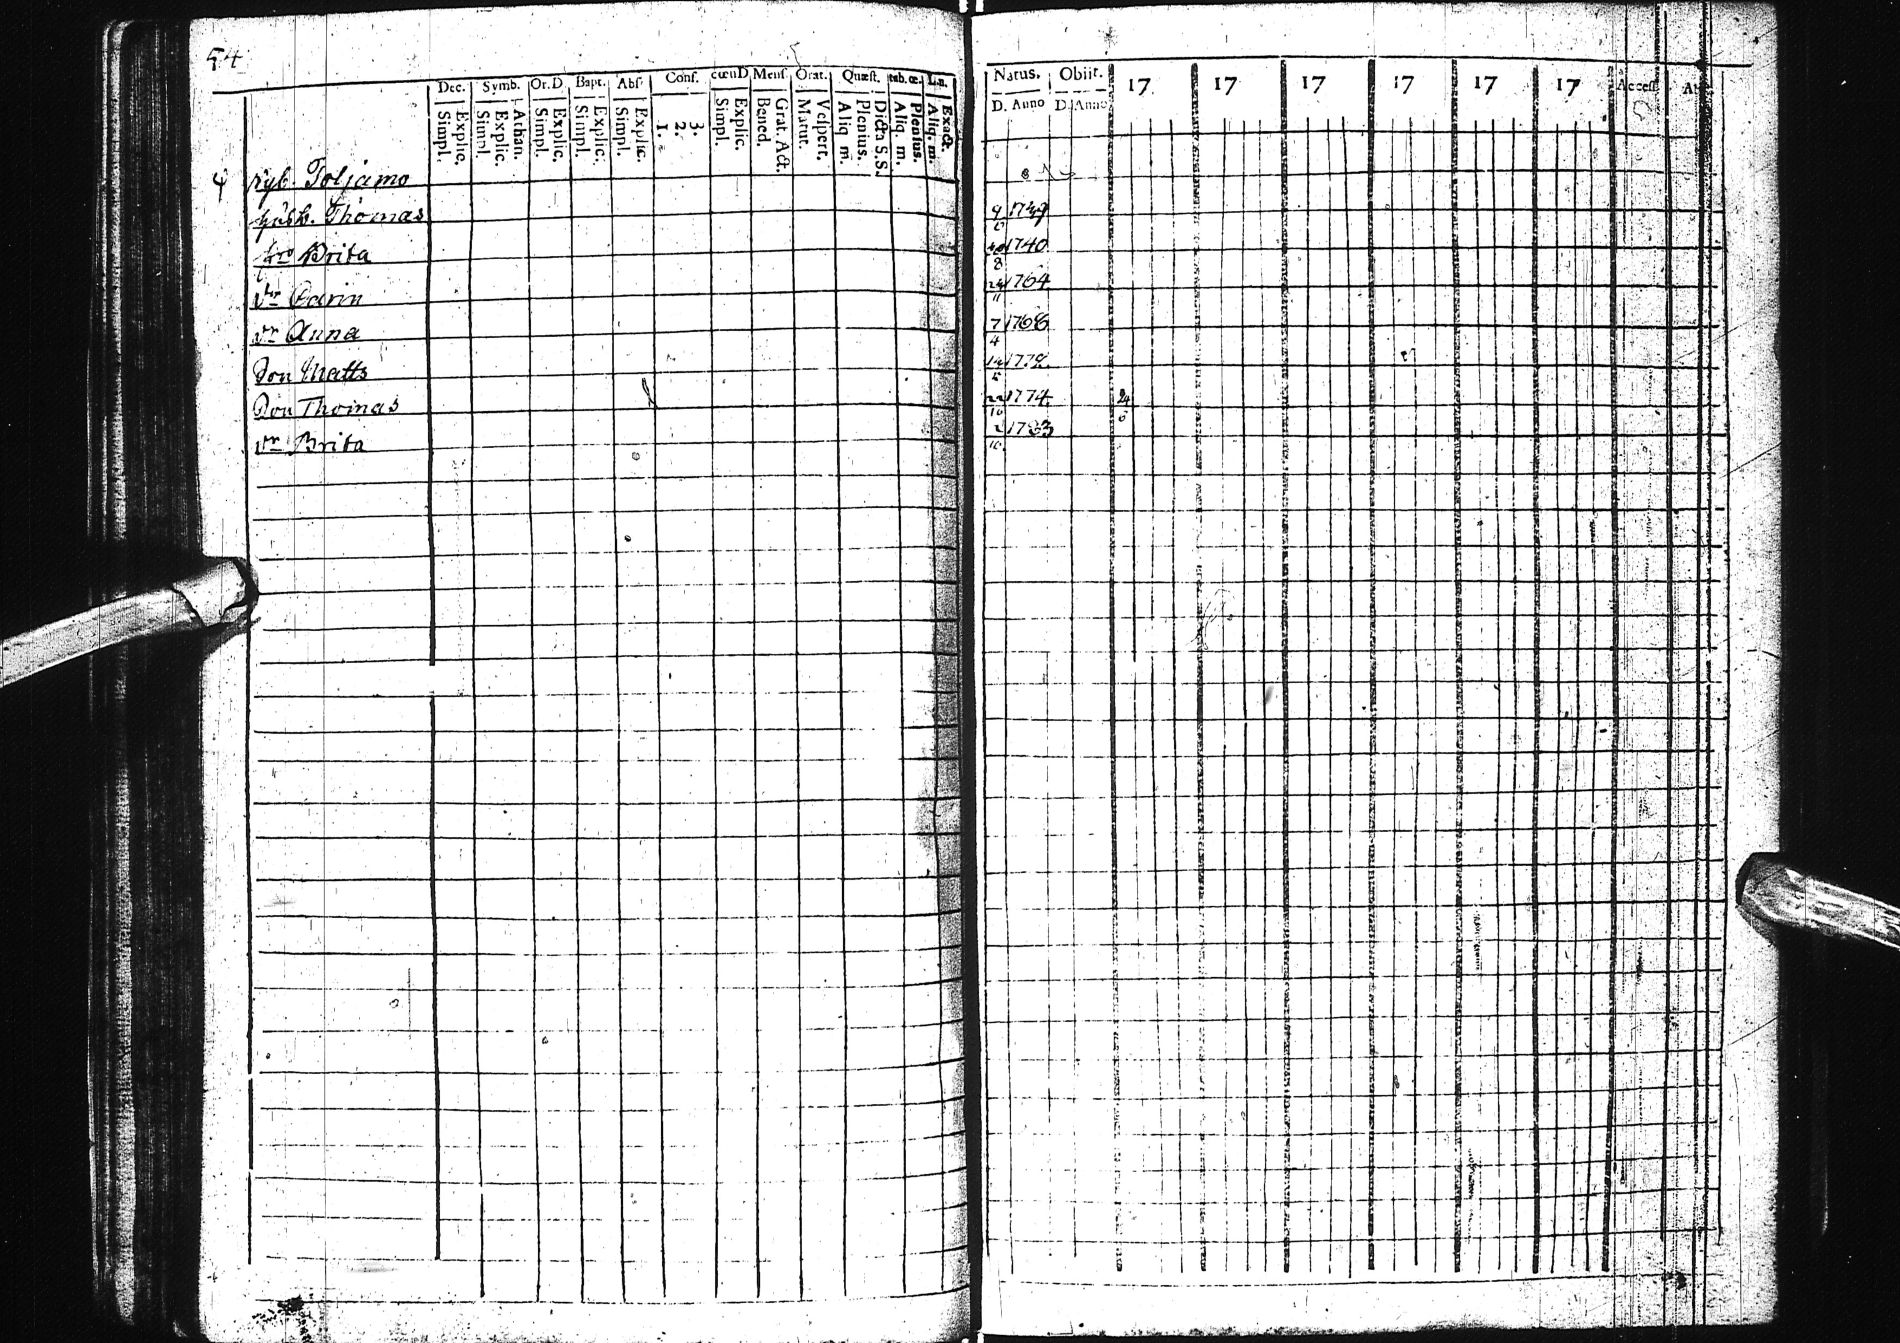 54
Dec. Symb. Or. D Bapt. Abs. Conf. cœuD Mens. Orat. Quæst. tab. œ. L.n.
Simpl. Explic. Simpl. Explic. Athan. Simpl. Explic. Simpl. Explic. Simpl. Explic. 1. 2. 3. Simpl. Explic. Bened. Grat. Act. Matut. Vespert. Aliq. m. Plenius. Dicta S.S. Aliq. m. Plenius. Aliq. m. Exact.
Natus. Obiit. 17 17 17 17 17 17 Access.
D. Anno D. Anno
4 Nyb. Toljamo
husb. Thomas 9 1749
Brita 1740
8
Dr Carin 24 1764
11
Dr Anna 7 1768
4
Son Matts 14 1772
Son Thomas 22 1774 24
10 6
Dr Brita 2 1783
10